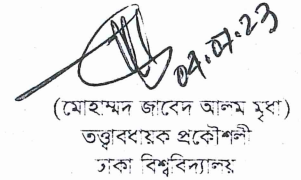 04.07.23
(মোহাম্মদ জাবেদ আলম মৃধা)
তত্ত্বাবধায়ক প্রকৌশলী
ঢাকা বিশ্ববিদ্যালয়